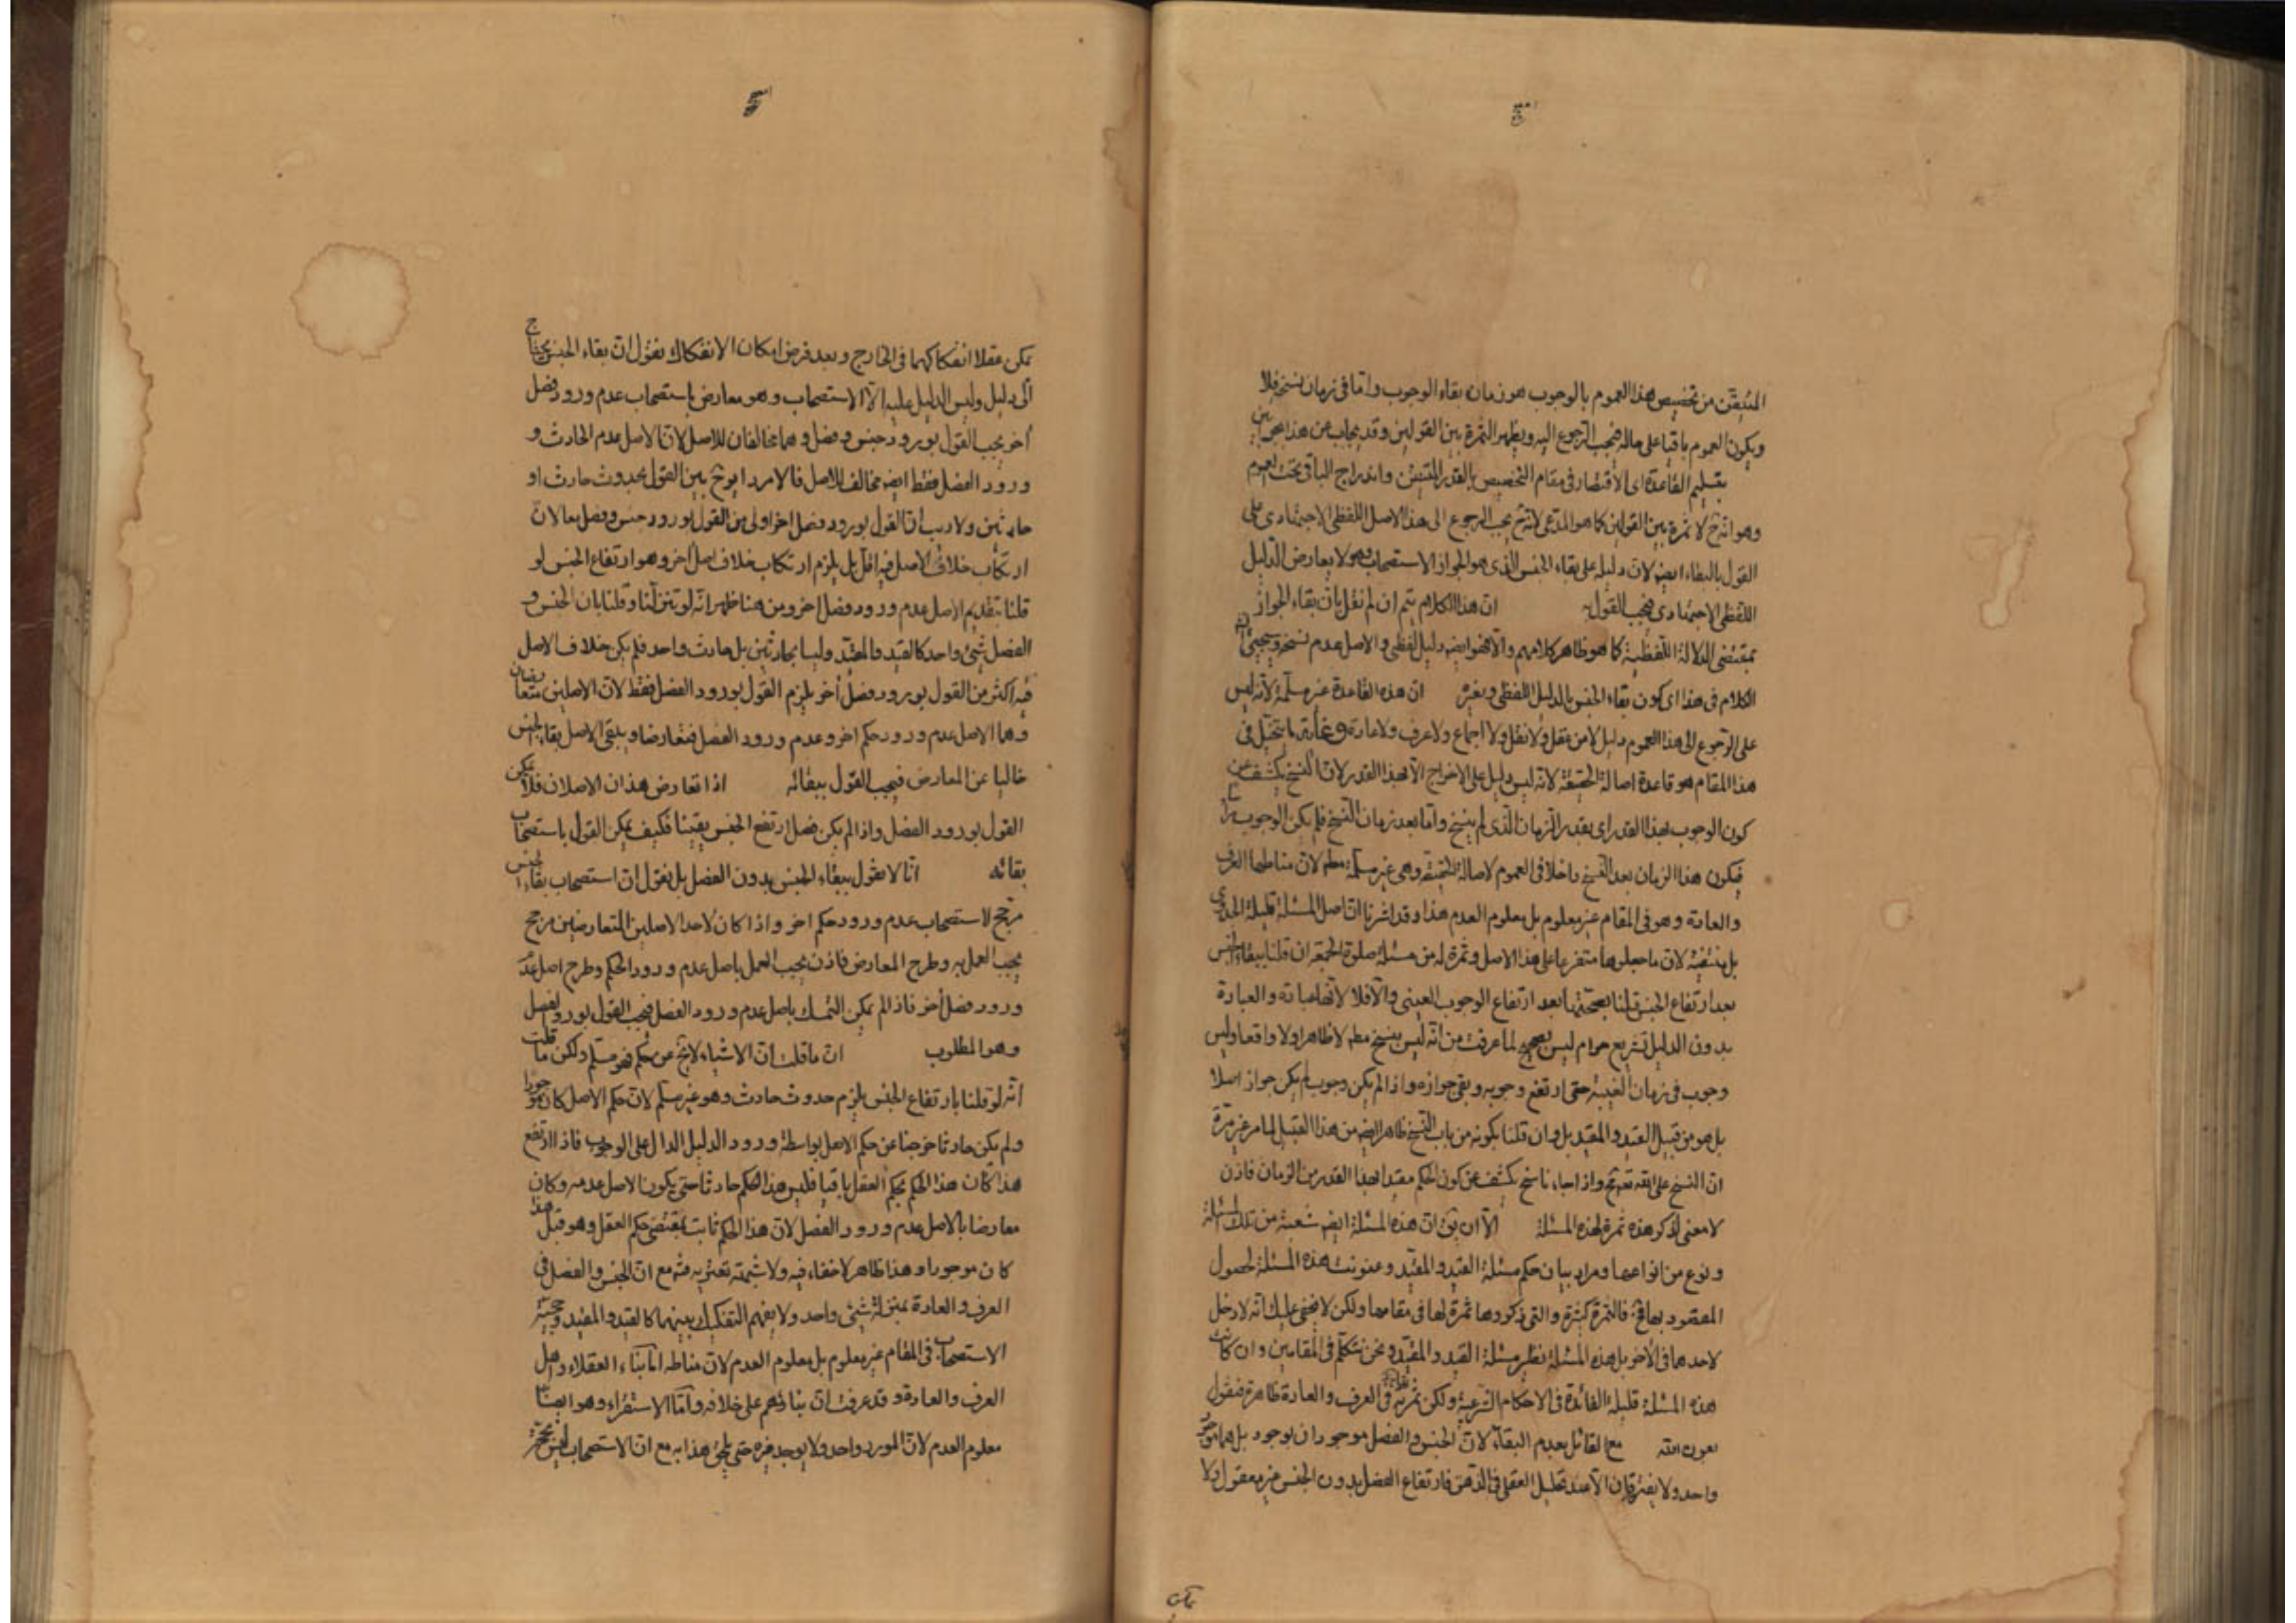 المتيقن من تخصيص هذا العموم بالوجوب هو زمان بقاء الوجوب واما في زمان نسخ فلا
ويكون العموم باقيا على حاله فيجب الرجوع اليه ويظهر الثمرة بين القولين وقد يجاب عن هذا بجوابين
بتسليم القاعدة اى الاقتصار في مقام التخصيص بالقدر المتيقن واندراج الباقى تحت العموم
وهو انه ح لا ثمرة بين القولين كما هو المدعى لانه ح يجب الرجوع الى هذا الاصل اللفظى الاجتهادى على
القول بالبقاء ايضا لان دليله على بقاء الجنس الذى هو الجواز الاستصحاب وهو لا يعارض الدليل
اللفظى الاجتهادى فيجب القول به ان هذا الكلام يتم ان لم نقل بان بقاء الجواز
بمقتضى الدلالة اللفظية كما هو ظاهر كلامهم والا فهو ايضا دليل لفظى والاصل عدم نسخه وسيجئ ان
الكلام في هذا اى كون بقاء الجنس بالدليل اللفظى وبغيره ان هذه القاعدة غير مسلمة لانه ليس
على الرجوع الى هذا العموم دليل لا من عقل ولا نقل ولا اجماع ولا عرف ولا عادة وغاية ما يتخيل في
هذا المقام هو قاعدة اصالة الحقيقة لانه ليس دليل على الاخراج الا بهذا القدر لان النسخ يكشف عن
كون الوجوب بهذا القدر اى بقدر الزمان الذى لم ينسخ واما بعد زمان النسخ فلم يكن الوجوب
فيكون هذا الزمان بعد النسخ داخلا في العموم لاصالة الحقيقة وهى غير مسلمة مطم لان مناطها العرف
والعادة وهو في المقام غير معلوم بل معلوم العدم هذا وقد اشرنا ان اصل المسئلة قليلة الجدوى
بل منتفية لان ما جعلوها متفرعا على هذا الاصل وثمرة له من مسئلة صلوة الجمعة ان قلنا ببقاء الجنس
بعد ارتفاع الجنس قلنا بصحتها بعد ارتفاع الوجوب العينى والا فلا لانها عبادة والعبادة
بدون الدليل تشريع حرام ليس بصحيح لما عرفت من انه ليس بنسخ مطم لا ظاهرا ولا واقعا وليس
وجوب في زمان الغيبة حتى ارتفع وجوبه وبقى جوازه واذا لم يكن وجوب لم يكن جواز اصلا
بل هو من قبيل القيد والمقيد بل وان قلنا بكونه من باب النسخ ظاهرا ايضا من هذا القبيل لما مر غير مرة
ان النسخ على الله تعالى قبيح واذا جاء ناسخ يكشف عن كون الحكم مقيدا بهذا القدر من الزمان فاذن
لا معنى لذكر هذه ثمرة لهذه المسئلة الا ان يق ان هذه المسئلة ايضا شعبة من تلك المسئلة
ونوع من انواعها ومراد بيان حكم مسئلة القيد والمقيد وعنونت هذه المسئلة لحصول
المقصود بها فح فالثمرة كثيرة والتى ذكروها ثمرة لها في مقامها ولكن لا يخفى عليك انه لا دخل
لاحدهما في الاخر بل هذه المسئلة نظير مسئلة القيد والمقيد ونحن نتكلم في المقامين وان كانت
هذه المسئلة قليلة الفائدة في الاحكام الشرعية ولكن ثمرته في العرف والعادة ظاهرة فنقول
بعون الله مع القائل بعدم البقاء لان الجنس والفصل موجودان بوجود بل هما موجود
واحد ولا يفترقان الا عند تحليل العقل في الذهن فارتفاع الفصل بدون الجنس غير معقول ولا
يمكن
يمكن عقلا انفكاكهما في الخارج وبعد فرض امكان الانفكاك نقول ان بقاء الجنس يحتاج
الى دليل وليس الدليل عليه الا الاستصحاب وهو معارض باستصحاب عدم ورود فصل
اخر يجب القول بورود جنس وفصل وهما مخالفان للاصل لان الاصل عدم الحادث و
ورود الفصل فقط ايضا مخالف للاصل فالامر دائر ح بين القول بحدوث حادث او
حادثين ولا ريب ان القول بورود فصل اخر اولى من القول بورود جنس وفصل معا لان
ارتكاب خلاف الاصل فيه اقل بل يلزم ارتكاب خلاف اصل اخر وهو ارتفاع الجنس لو
قلنا بتقديم الاصل عدم ورود فصل اخر ومن هنا ظهر انه لو تنزلنا وقلنا بان الجنس و
الفصل شئ واحد كالقيد والمقيد وليسا بحادثين بل حادث واحد فلم يكن خلاف الاصل
فيه اكثر من القول بورود فصل اخر يلزم القول بورود الفصل فقط لان الاصلين متعارضان
وهما الاصل عدم ورود حكم اخر وعدم ورود الفصل فتعارضا ويبقى الاصل بقاء الجنس
خاليا عن المعارض فيجب القول ببقائه اذا تعارض هذان الاصلان فلا يمكن
القول بورود الفصل واذا لم يكن فصل ارتفع الجنس يقينا فكيف يمكن القول باستصحاب
بقائه انا لا نقول ببقاء الجنس بدون الفصل بل نقول ان استصحاب بقاء الجنس
مرجح لاستصحاب عدم ورود حكم اخر واذا كان لاحد الاصلين المتعارضين مرجح
يجب العمل به وطرح المعارض فاذن يجب العمل باصل عدم ورود الحكم وطرح اصل عدم
ورود فصل اخر فاذا لم يمكن التمسك باصل عدم ورود الفصل فيجب القول بورود الفصل
وهو المطلوب ان ما قلت ان الاشياء لا يخ عن حكم فهو مسلم ولكن ما قلت
انه لو قلنا بارتفاع الجنس يلزم حدوث حادث وهو غير مسلم لان حكم الاصل كان موجودا
ولم يكن حادثا خرجنا عن حكم الاصل بواسطة ورود الدليل الدال على الوجوب فاذا ارتفع
هذا كان هذا الحكم بحكم العقل باقيا فليس هذا الحكم حادثا حتى يكون الاصل عدمه وكان
معارضا بالاصل عدم ورود الفصل لان هذا الحكم ثابت بمقتضى حكم العقل وهو قبل هذا
كان موجودا وهذا ظاهر لا خفاء فيه ولا شبهة تعتريه ثم مع ان الجنس والفصل في
العرف والعادة بمنزلة شئ واحد ولا يفهم التفكيك بينهما كالقيد والمقيد وحجية
الاستصحاب في المقام غير معلوم بل معلوم العدم لان مناطه اما بناء العقلاء واهل
العرف والعادة وقد عرفت ان بنائهم على خلافه واما الاستقراء وهو ايضا
معلوم العدم لان المورد واحد ولا يوجد غيره حتى يلحق هذا به مع ان الاستصحاب ليس بحجة